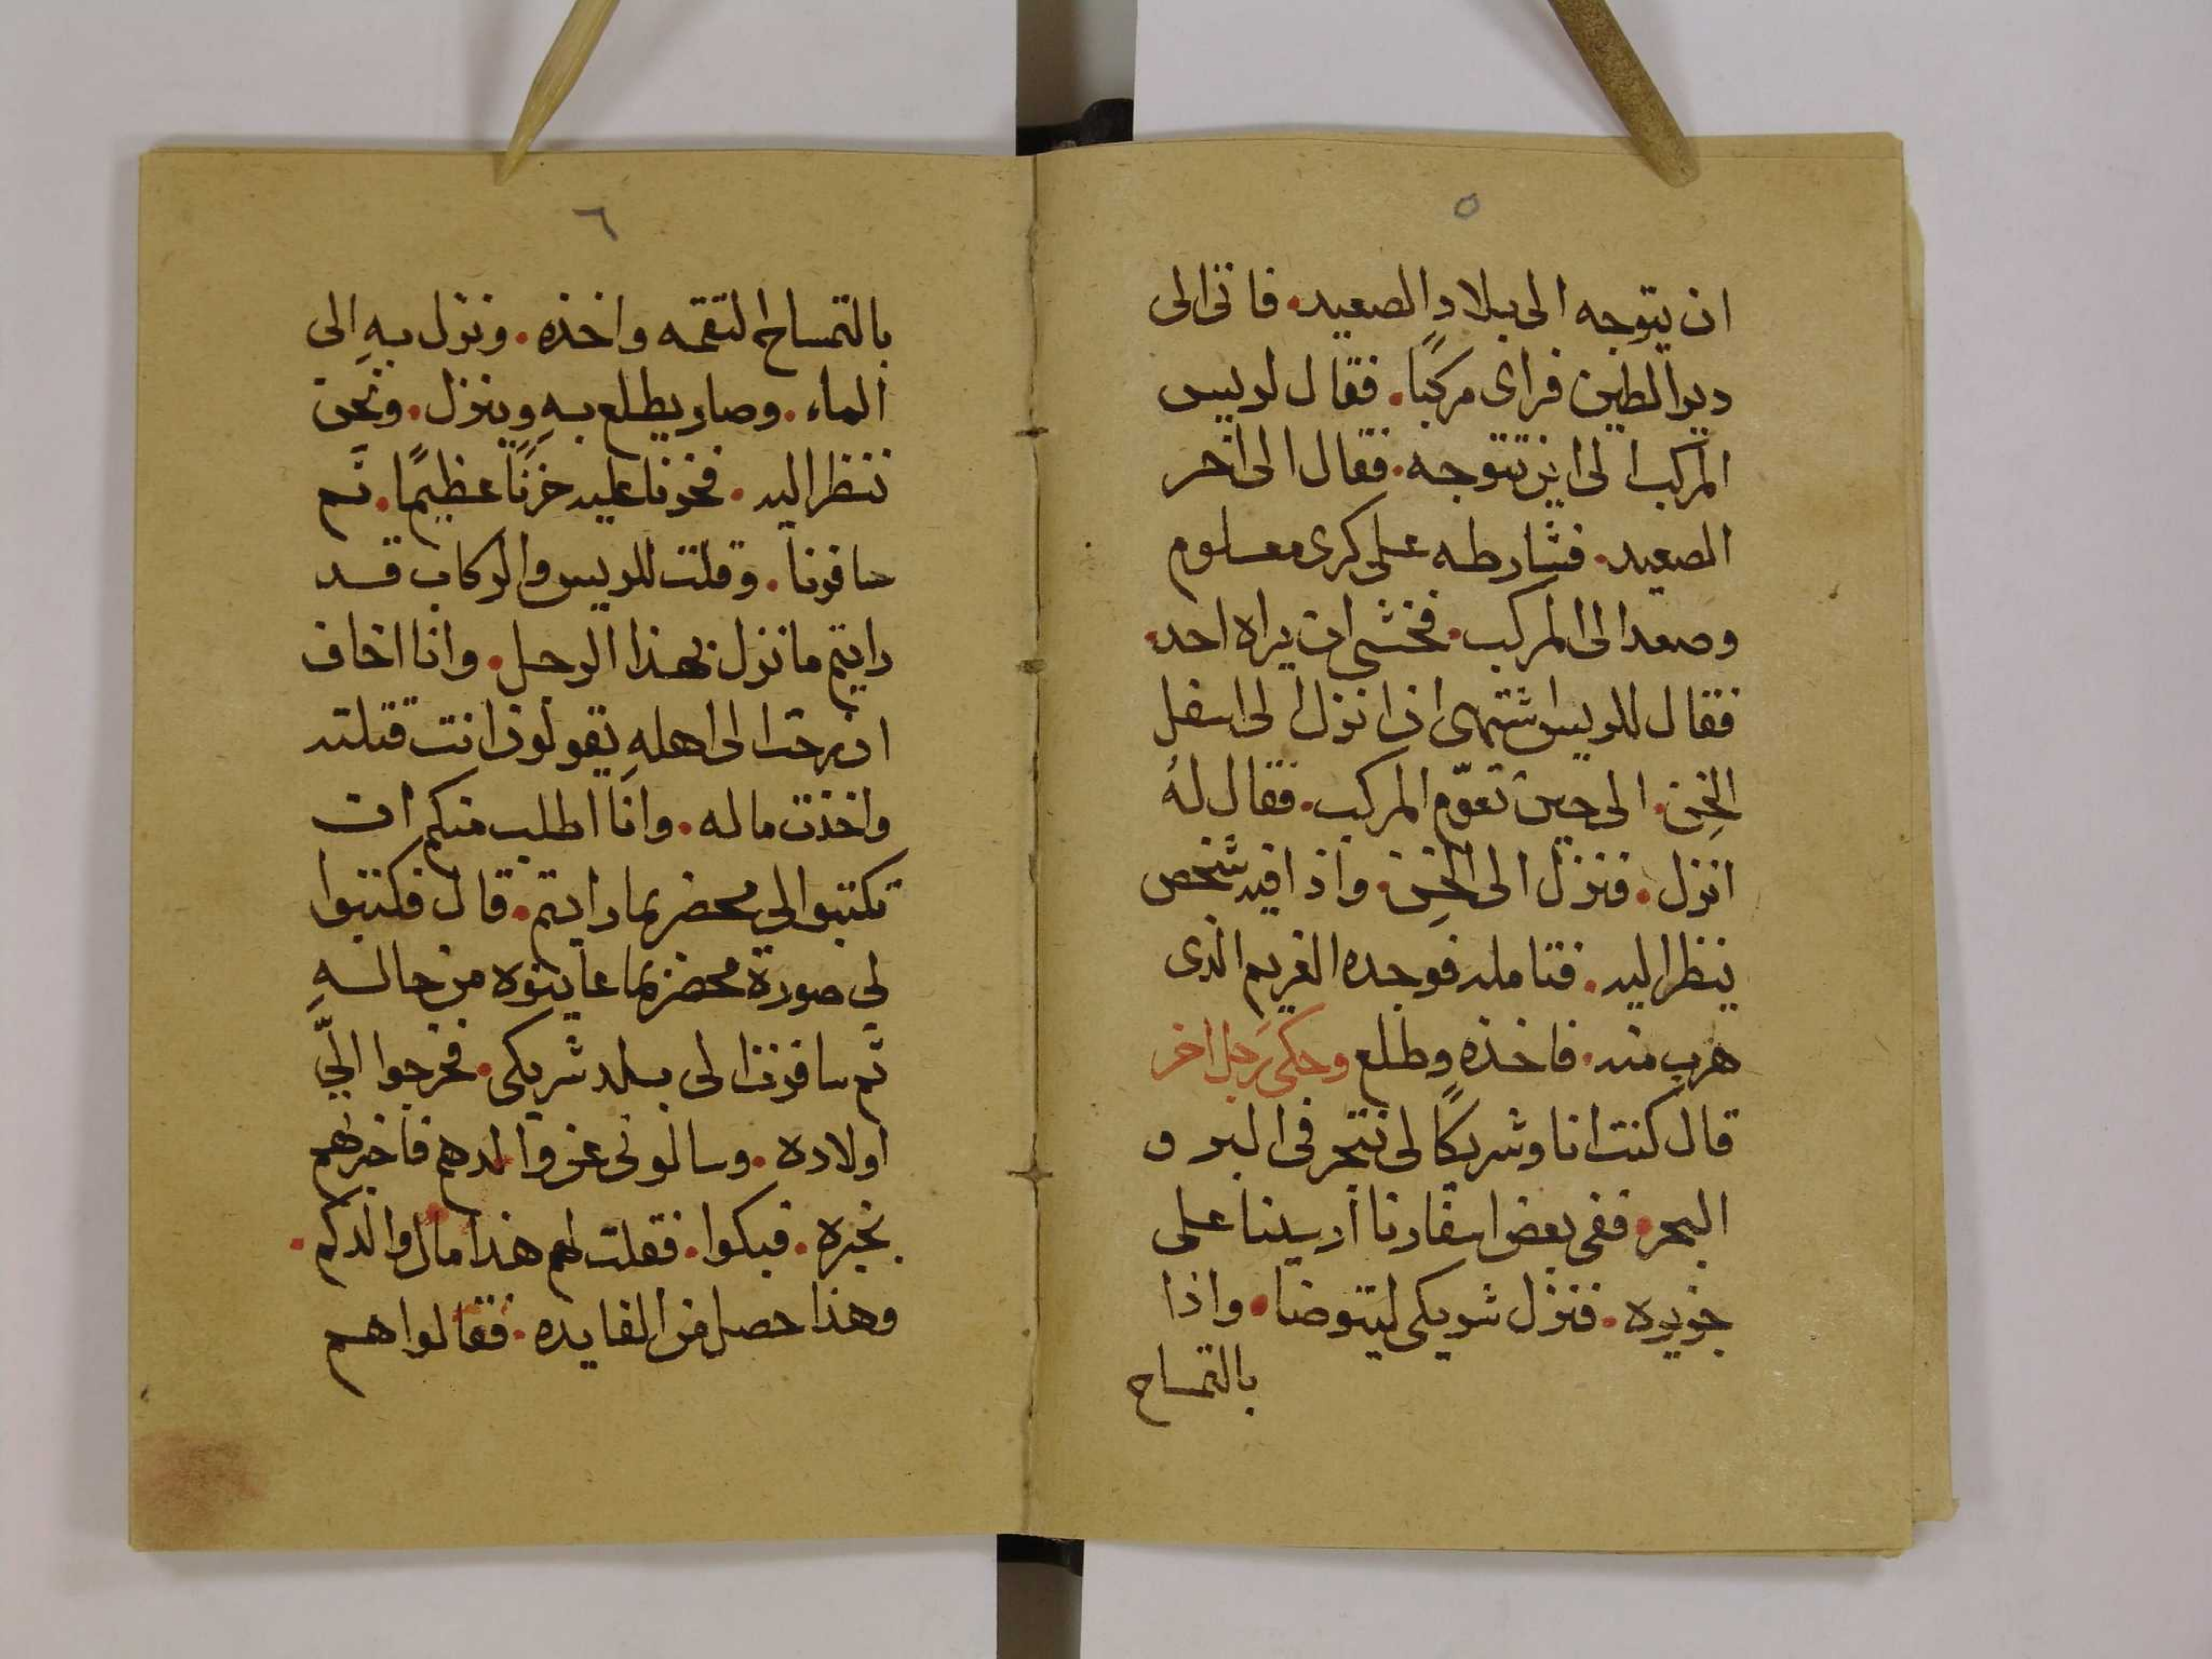 ٥
ان يتوجه الى بلاد الصعيد. فاتى الى
دير الطين فراى مركبًا. فقال لريس
المركب الى اين تتوجه. فقال الى اخر
الصعيد. فشارطه على كرى معلوم
وصعد الى المركب. فخشى ان يراه احد.
فقال للريس اشتهى ان انزل الى اسفل
الخِن. الى حين تعوّم المركب. فقال لهُ
انزل. فنزل الى الخِن. واذا فيه شخص
ينظر اليه. فتامله فوجده الغريم الذى
هرب منه. فاخذه وطلع وحكى رجل اخر
قال كنت انا وشريكًا لى نتجر فى البر و
البحر. ففى بعض اسفارنا ارسينا على
جزيره. فنزل شريكى ليتوضا. واذا
بالتمساح
٦
بالتمساح التقمه واخذه. ونزل بهِ الى
الماء. وصار يطلع بهِ وينزل. ونحن
ننظر اليه. فحزنا عليه حزنًا عظيمًا. ثم
سافرنا. وقلت للريس والركاب قد
رايتم ما نزل بهذا الرجل. وانا اخاف
ان رحت الى اهلهِ يقولون انت قتلته
واخذت ماله. وانا اطلب منكم ان
تكتبوا لى محضر بما رايتم. قال فكتبوا
لى صورة محضر بما عاينوه من حالهِ
ثم سافرنا الى بلد شريكى. فخرجوا اليّ
اولاده. وسالونى عن والدهم فاخبرتهم
بخبره. فبكوا. فقلت لهم هذا مال والدكم.
وهذا حصل من الفايده. فقالوا هم